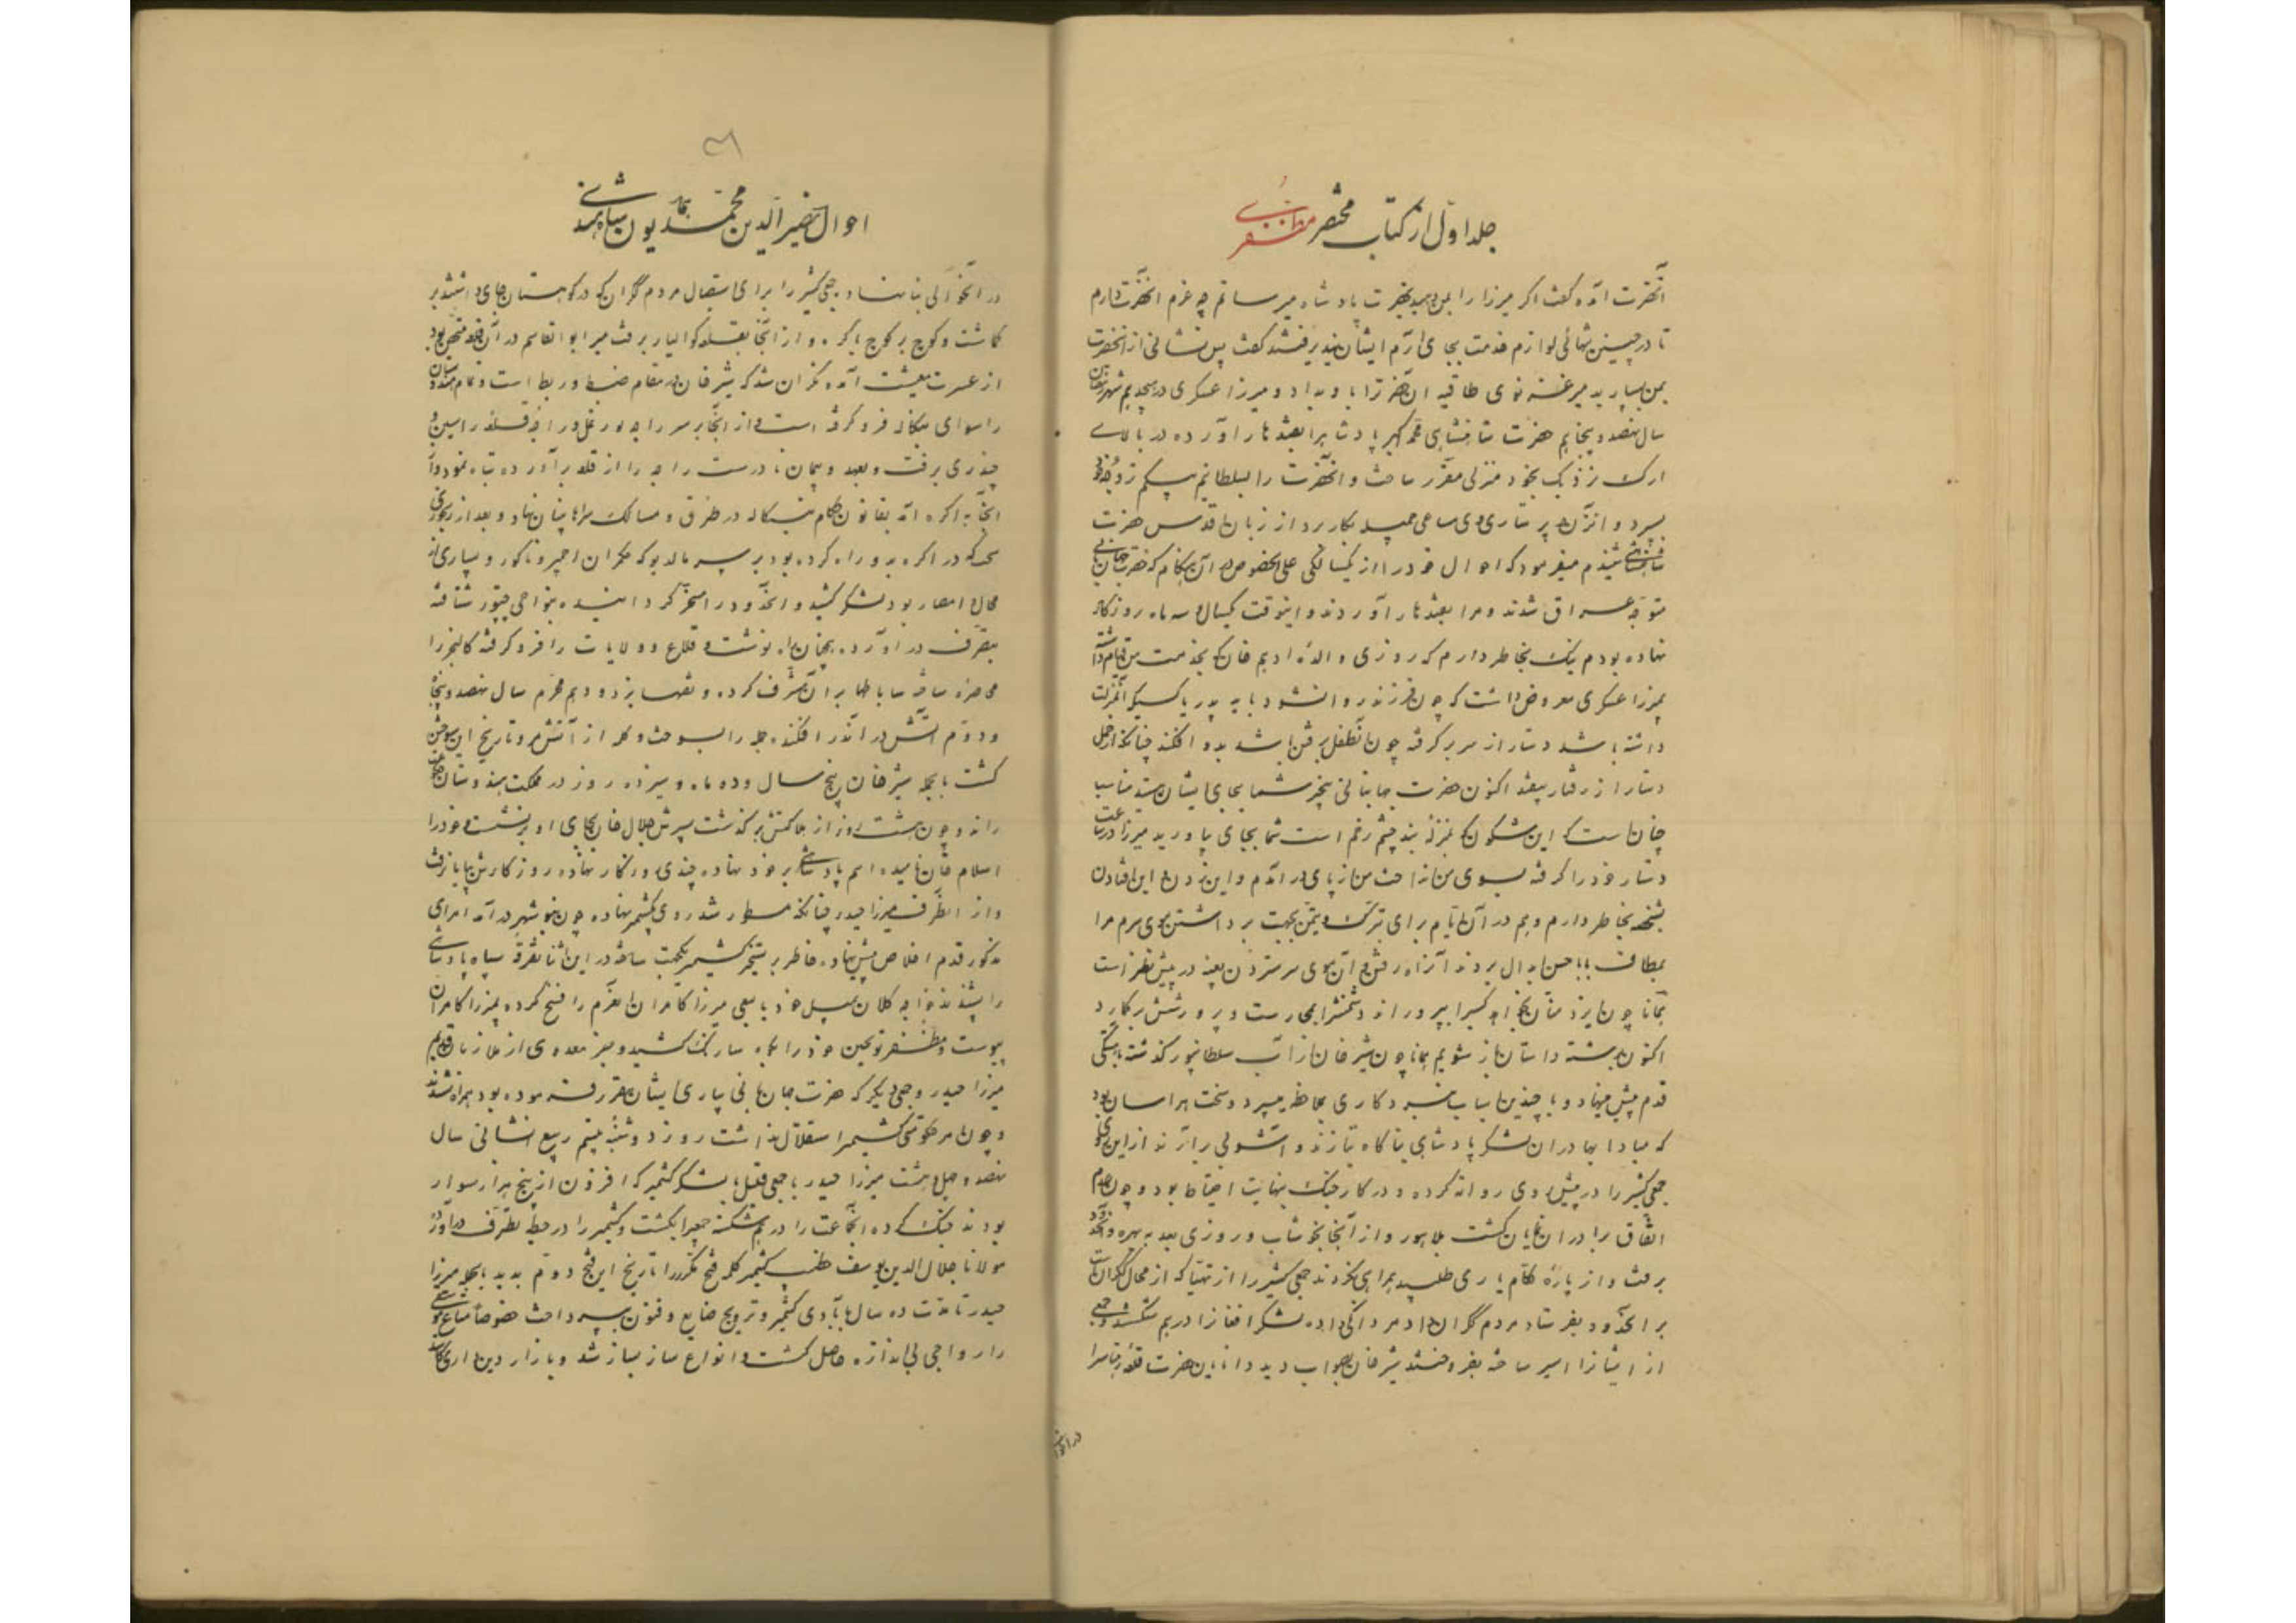 جلد اول از کتاب مختصر مظفری
آنحضرت آمده گفت اگر میرزا را بمن دهید بحضرت پادشاه میرسانم چه عزم آنحضرت دارم
تا در چنین تنهائی لوازم خدمت بجای آرم ایشان نپذیرفتند گفت پس نشانی از آنحضرت
بمن بسپارید میر غزنوی طاقیه آن حضرت را باو بداد و میرزا عسکری در هیجدهم شهر رمضان
سال نهصد و پنجاهم حضرت شاهنشاهی محمد اکبر پادشاه را بقندهار آورده در بالای
ارک نزدیک بخود منزلی مقرر ساخت و آنحضرت را بسلطانم بیگم زوجه خود
بسپرد و آنزن در پرستاری وی مساعی جمیله بکار برد از زبان اقدس حضرت
شاهنشاهی شنیدم میفرمود که احوال خود را از یکسالگی علی الخصوص در آن هنگام که حضرت جهانبانی
متوجه عراق شدند و مرا بقندهار آوردند و اینوقت یکسال و سه ماه روزگار
نهاده بودم نیک بخاطر دارم که روزی والده ادهم خان که بخدمت من قیام داشت
بمیرزا عسکری معروض داشت که چون فرزند روان شود باید پدر یا کسیکه آن منزلت
داشته باشد دستار از سر برگرفته چون آن طفل برفتن باشد بدو افکند چنانکه از حمل
دستار از رفتار بیفتد اکنون حضرت جهانبانی نیستند شما بجای ایشان هستید مناسب
چنان است که این شگون که بمنزله سپند چشم زخم است شما بجای بیاورید میرزا در ساعت
دستار خود را گرفته بسوی من انداخت من از پای در آمدم و این زدن و این افتادن
بشخصه بخاطر دارم و هم در آن ایام برای تبرک و تیمن بجهت برداشتن موی سرم مرا
بمطاف بابا حسن ابدال بردند آن راه رفتن و آن موی سر ستردن بعینه در پیش نظر است
همانا چون ایزد منان بخواهد کسیرا بپروراند دشمنش را بحمایت و پرورشش برگمارد
اکنون بر رشته داستان باز شویم همانا چون شیر خان از آب سلطانپور گذشته بآهستگی
قدم پیش مینهاد و با چندین اسباب نبردکاری ملاحظه میبرد و سخت هراسان بود
که مبادا بهادران لشکر پادشاهی بناگاه بتازند و آشوبی برآرند از این روی
جمعی کثیر را در پیش روی روانه کرده و در کار جنگ بنهایت احتیاط بود و چون عدم
اتفاق برادران نمایان گشت بلاهور و از آنجا بخوشاب و روزی بعد به بهره و آنحدود
برفت و از پاره حکام یاری طلبید همراهی نکردند جمعی کثیر را از تنبیه که از محال گکران است
بر آنحدود بفرستاد مردم گکران داد مردانگی داده لشکر افغان را درهم شکستند و جمعی
از ایشان را اسیر ساخته بفروختند شیر خان بصواب دید دانایان حضرت قلعه رهتاس را
در آنحوالی
۳۱
احوال نصیر الدین محمد همایون پادشاه هندی
در آنحوالی بنا نهاد و جمعی کثیر را برای استیصال مردم گگران که در کوهستان جای داشتند بر
گماشت و کوچ بر کوچ باگره و از آنجا بقلعه گوالیار برفت میر ابو القاسم در آن قلعه متحصن بود
از عسرت معیشت آمده نگران شد که شیر خان در مقام ضبط و ربط است و تمام هندوستان
را سوای بنگاله فرو گرفته است و از آنجا بر سر راجه پورنمل در آمد قلعه رایسین
چندی برفت و بعهد و پیمان نادرست راجه را از قلعه برآورده تباه نمود و از
آنجا به اگره آمد بقانون حکام بنگاله در طرق و مسالک سراها بنیان نهاد و بعد از رنجوری
سخت که در اگره بدو راه کرده بود بر سر مالدیو که حکمران اجمیر و ناگور و بسیاری از
محال و امصار بود لشکر کشید و آنحدود را مسخر گردانیده بنواحی چتور شتافته
بتصرف در آورده بهمان راه نوشت و قلاع و ولایات را فرو گرفته کالنجر را
محاصره ساخته ساباطها بر آن مشرف کرده و نقب ها بزد و دهم محرم سال نهصد و پنجاه
و دوم آتش در آن در افکنده جمله را بسوخت و کله از آتش مرد تاریخ این سوختن
گشت بالجمله شیر خان پنج سال و ده ماه و سیزده روز در مملکت هندوستان حکم
راند و چون هشت روز از هلاکتش بر گذشت پسرش جلال خان بجای او بر نشست و خود را
اسلام خان نامیده اسم پادشاهی بر خود نهاده چندی روزگار نهاده روزگارش بپایان رفت
و از آنطرف میرزا حیدر چنانکه مسطور شد روی بکشمیر نهاده چون بنوشهر در آمد امرای
مذکور قدم اخلاص پیش نهاده خاطر بر تسخیر کشمیر یکجهت ساخته در این اثنا تفرقه سپاه پادشاهی
را بشنیدند خواجه کلان بیک خود با سعی میرزا کامران آن عزم را فسخ کرده بمیرزا کامران
پیوست و مظفر توپچین خود را بکوه سارنگ کشید و جز معدودی از ملازمان قدیم
میرزا حیدر و جمعی دیگر که حضرت جهانبانی بیاری ایشان مقرر فرموده بود همراه نشدند
و چون امر حکومتی کشمیر استقلال نداشت روز دوشنبه بیستم ربیع الثانی سال
نهصد و چهل و هشت میرزا حیدر با جمعی قلیل با لشکر کشمیر که افزون از پنج هزار سوار
بودند جنگ کرده آنجماعت را درهم شکسته جمعی را بکشت و کشمیر را در حیطه تصرف در آورد
مولانا جلال الدین یوسف خطیب کشمیر کلمه فتح مکرر را تاریخ این فتح دوم بدید بالجمله میرزا
حیدر تا مدت ده سال بآبادی کشمیر و ترویج صنایع و فنون بپرداخت خصوصا متاع موسیقی
را رواجی بی اندازه حاصل گشت و انواع ساز بساز شد و بازار دینداری کاسد